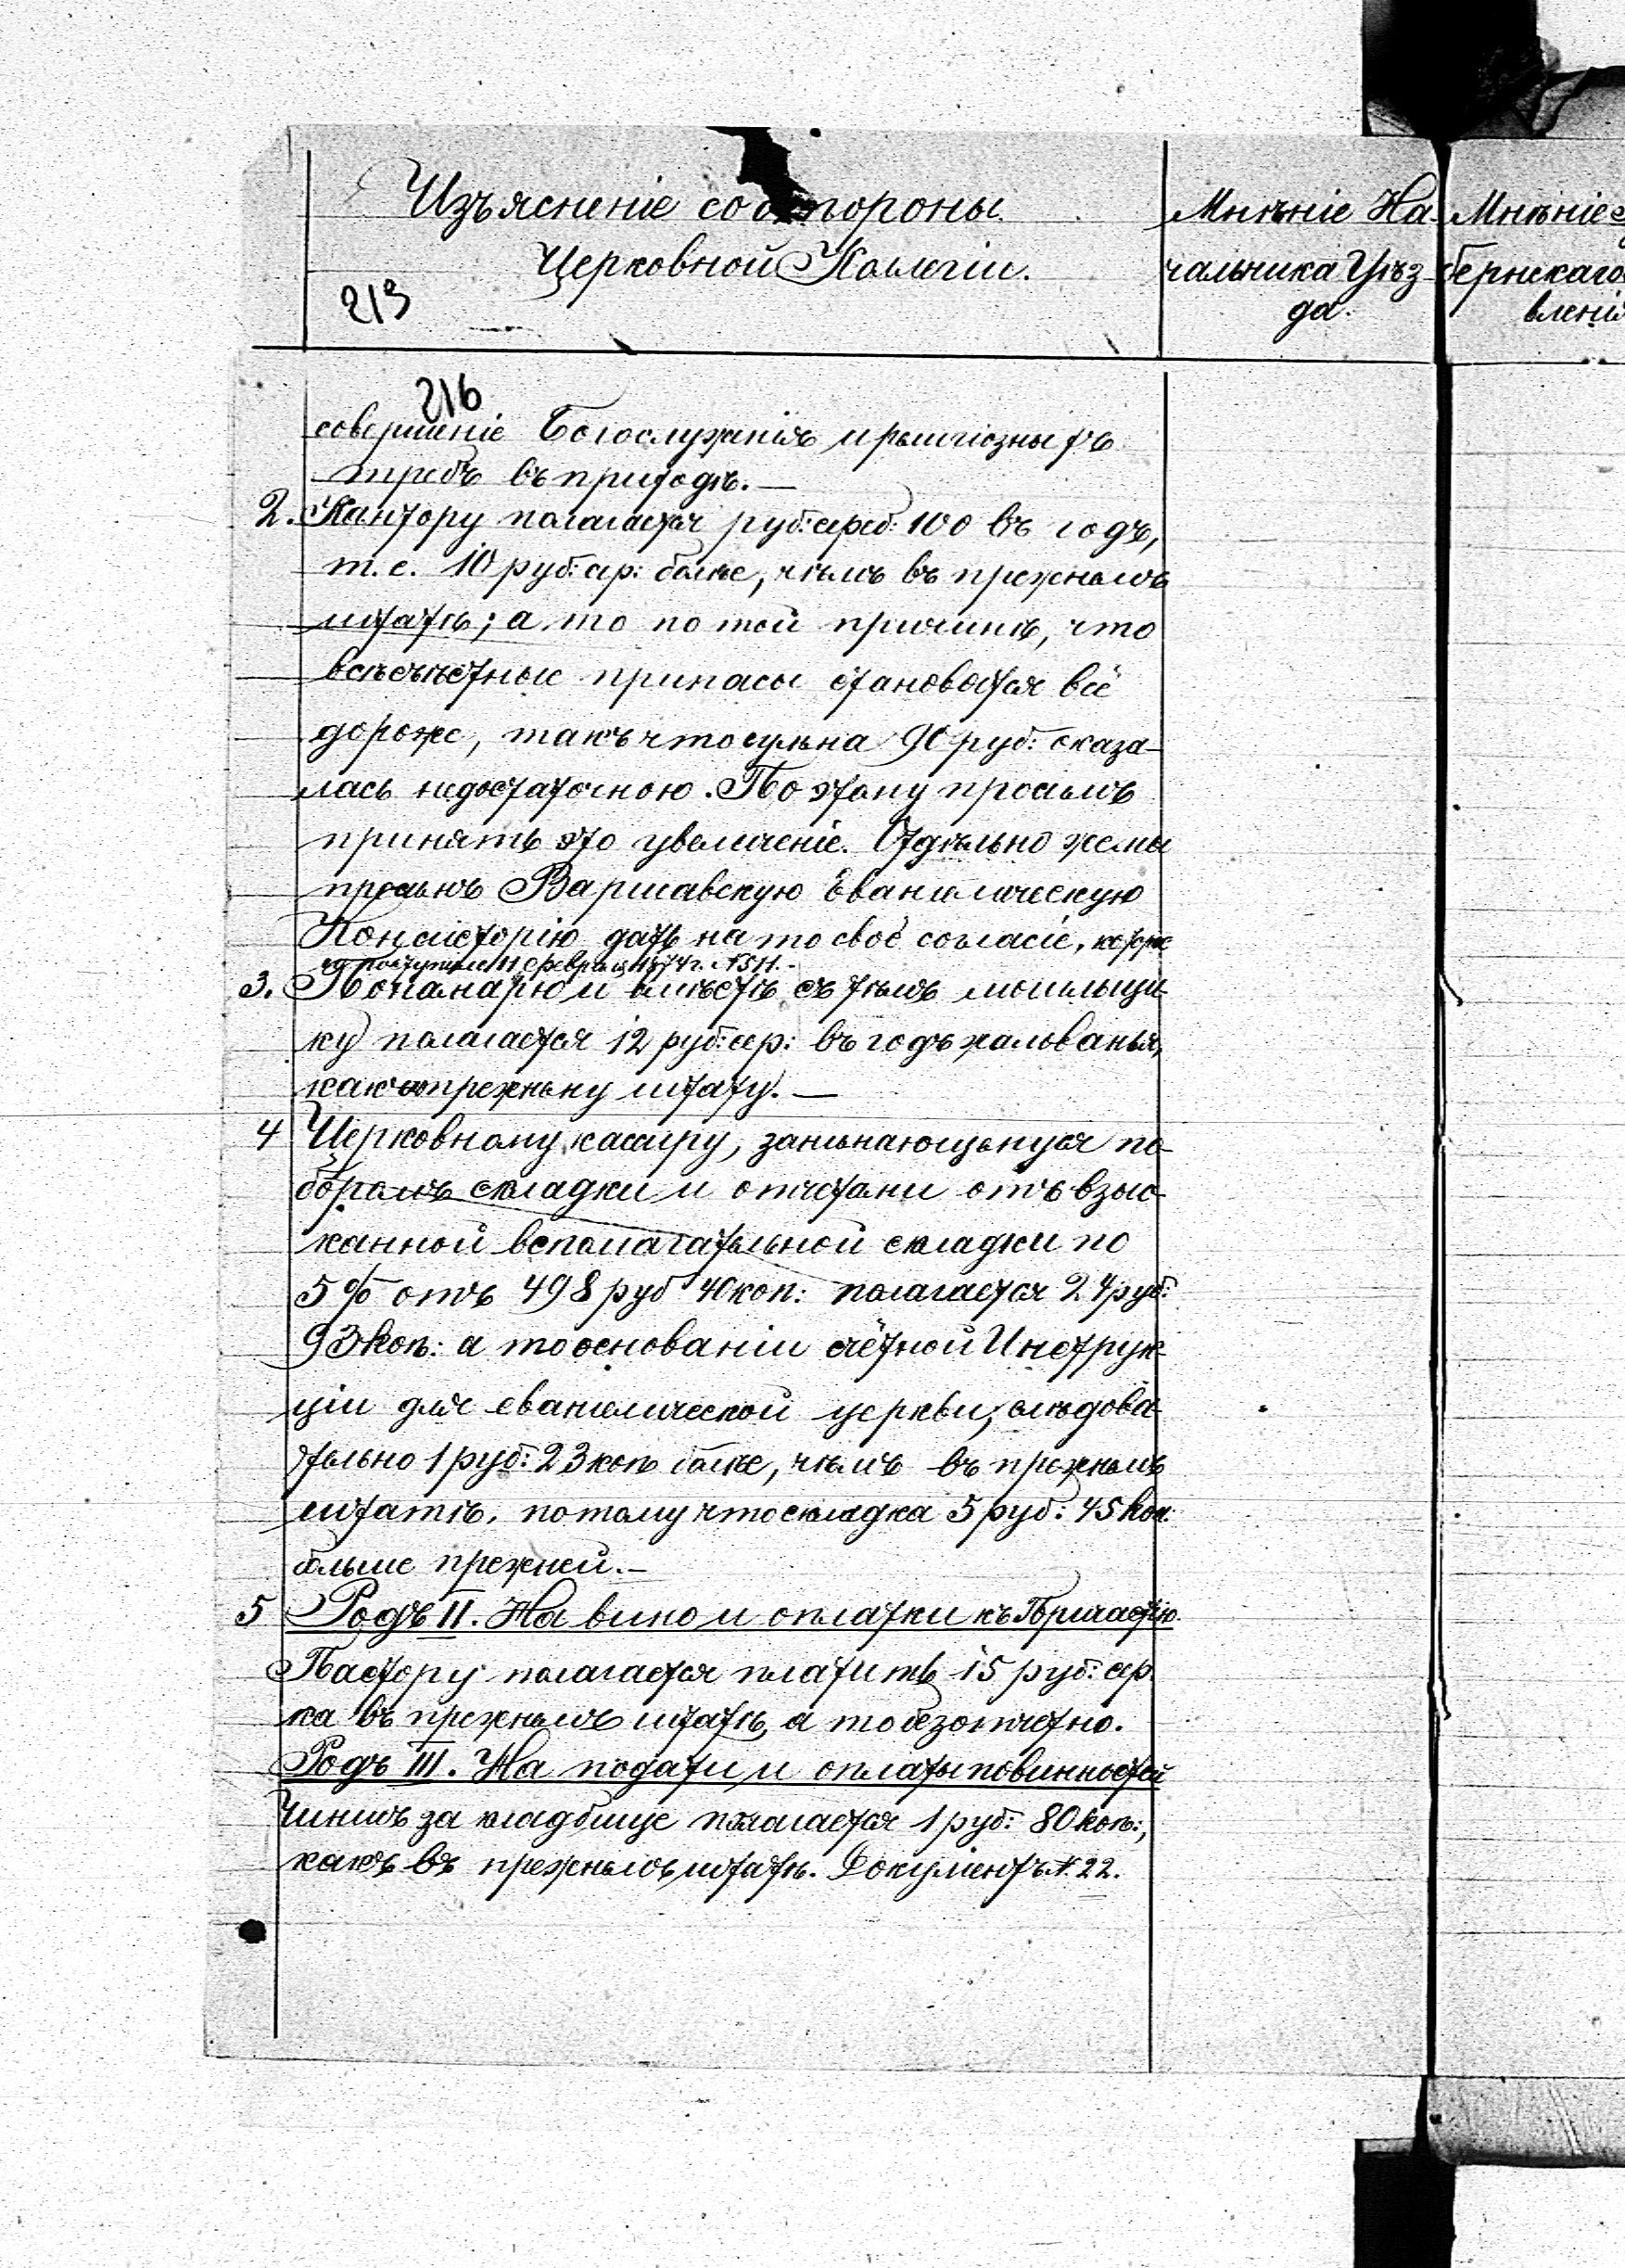 Изъясненіе со стороны
Церковной Коллегіи.
213
Мнѣніе На-
чальника Уѣз-
да.
Мнѣніе
бернскаго
вленія
216
совершеніе Богослуженія и религіозныхъ
требъ въ приходѣ.—
2. Кантору полагается руб: сереб: 100 въ годъ,
т. е. 10 руб: сер: болѣе, чѣмъ въ прежнемъ
штатѣ; а то по той причинѣ, что
всѣ съѣстные припасы становятся всё
дороже, такъ что сумма 90 руб: оказа-
лась недостаточною. По этому просимъ
принять это увеличеніе. Отдѣльно же мы
просимъ Варшавскую Евангелическую
Консисторію дать на то своё согласіе, которое
поступило 11 Февраля 1874 г. N 311.—
3. Понамарю и вмѣстѣ съ тѣмъ могильщи-
ку полагается 12 руб: сер: въ годъ жалованья,
какъ прежнему штату.—
4 Церковному кассиру, занимающемуся по-
боромъ складки и отчетами отъ взыс-
канной вспомагательной складки по
5% отъ 498 руб 40 коп: полагается 24 руб:
93 коп: а то основаніи счётной Инструк-
ціи для евангелической церкви, слѣдова-
тельно 1 руб: 23 коп болѣе, чѣмъ въ прежнемъ
штатѣ, потому что складка 5 руб: 45 коп:
больше прежней.—
5 Родъ II. На вино и оплатки къ Причастію.
Пастору полагается платить 15 руб: сер.
ка въ прежнемъ штатѣ, а то безотчетно.
Родъ III. На подати и оплаты повинностей
Чиншъ за кладбище полагается 1 руб: 80 коп:,
какъ въ прежнемъ штатѣ. Документъ N. 22.